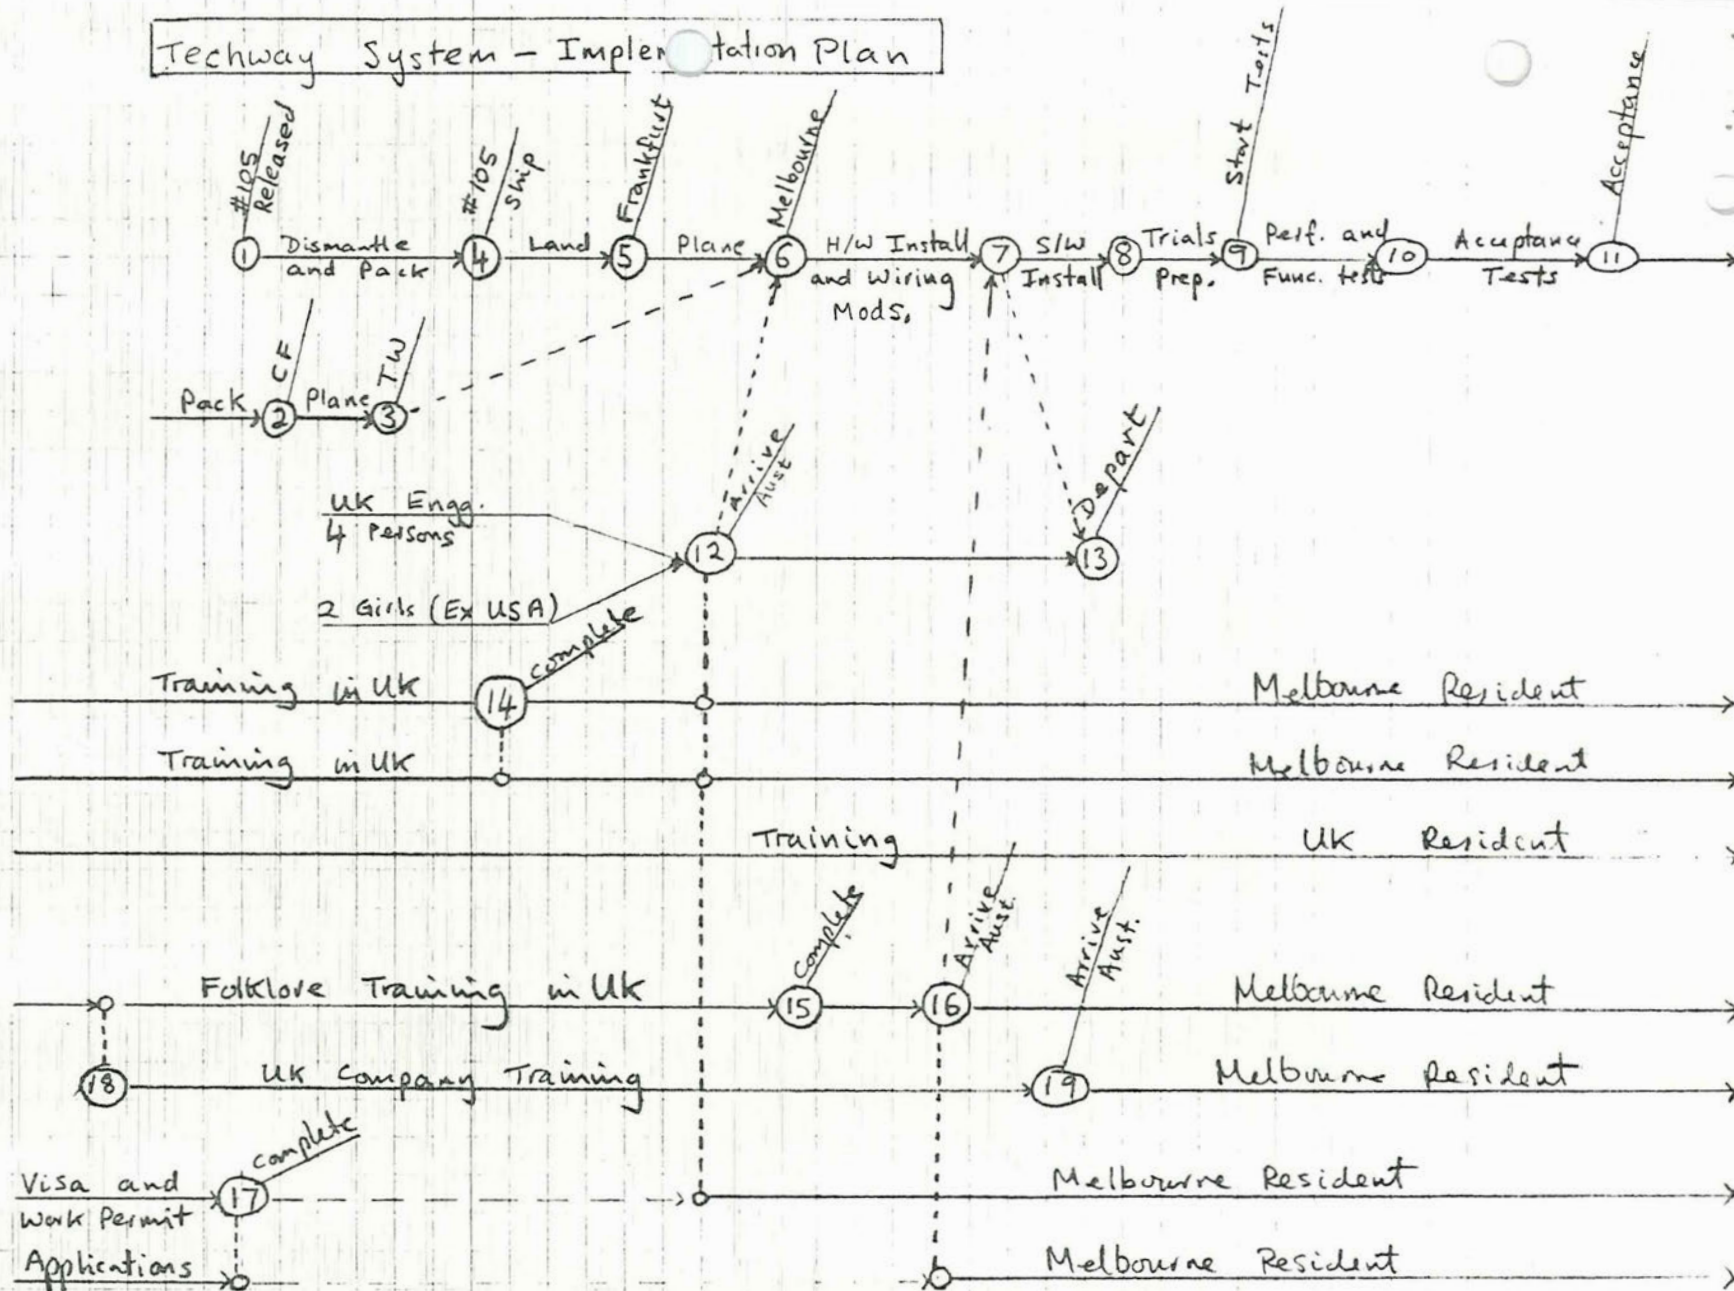 Techway System - Implementation Plan
#105
Released
#105
Ship
Frankfurt
Melbourne
Start Tests
Acceptance
1
Dismantle
and Pack
4
Land
5
Plane
6
H/W Install
and Wiring
Mods.
7
S/W
Install
8
Trials
Prep.
9
Perf. and
Func. tests
10
Acceptance
Tests
11
Pack
2
CF
Plane
3
TW
UK Engg.
4 Persons
2 Girls (Ex USA)
12
Arrive
Aust
13
Depart
Training in UK
14
complete
Melbourne Resident
Training in UK
Melbourne Resident
Training
UK Resident
Folklore Training in UK
15
Complete
16
Arrive
Aust.
Melbourne Resident
18
UK Company Training
19
Arrive
Aust.
Melbourne Resident
Visa and
Work Permit
17
complete
Melbourne Resident
Applications
Melbourne Resident